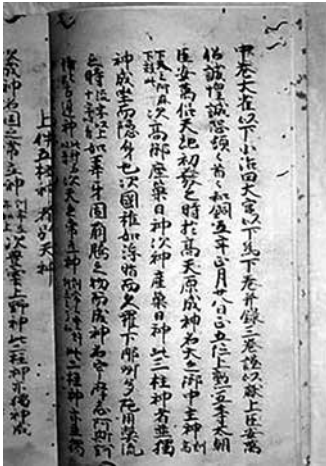 中巻大雀以下小治田大宮以下為下巻并録三巻謹以献上臣安萬
侶誠惶誠恐頓々首々和銅五年正月廿八日正五位上勲五等太朝
臣安萬侶天地初發之時於高天原成神名天之御中主神
次高御産巣日神次神産巣日神此三柱神者並獨
神成坐而隠身也次國稚如浮脂而久羅下那州多陀用弊流
之時如葦牙因萠騰之物而成神名宇摩志阿斯訶
備比古遅神次天之常立神此二柱神亦並獨
上件五柱神者別天神
次成神名国之常立神次豊雲上野神此二柱神亦獨神成